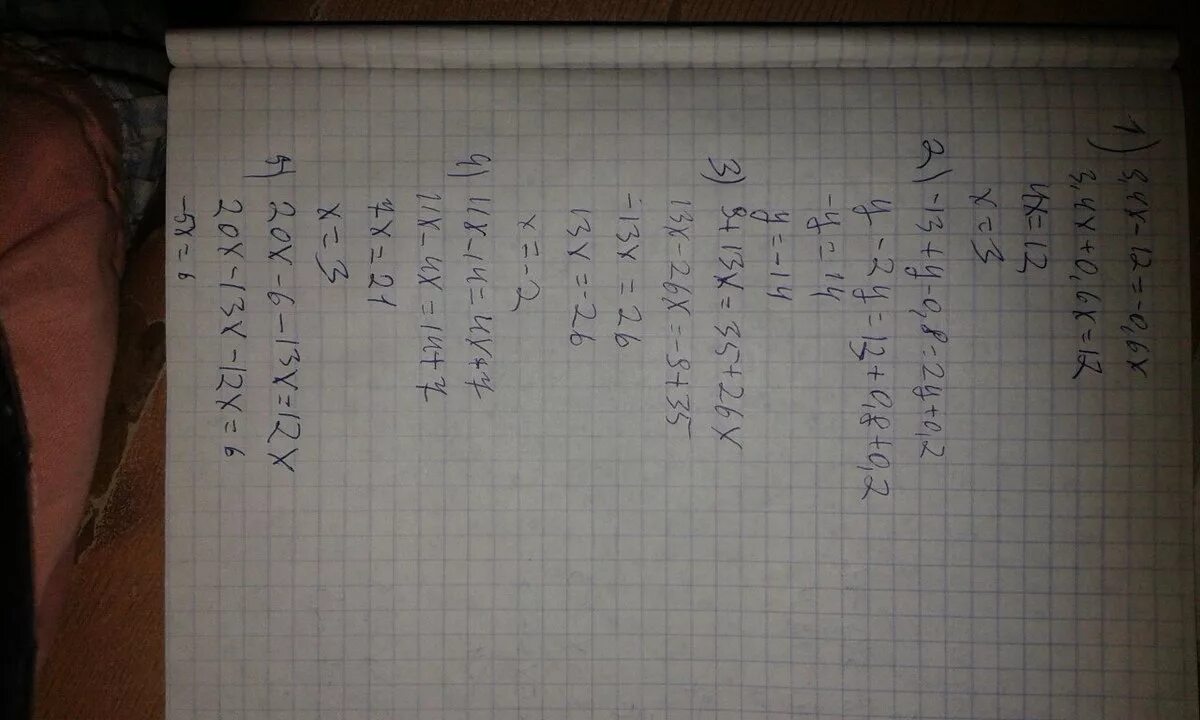 1) 3,4x-12=-0,6x
3,4x+0,6x=12
4x=12
x=3
2) -13+y-0,8=2y+0,2
y-2y=13+0,8+0,2
-y=14
y=-14
3) 9+13x=35+26x
13x-26x=-9+35
-13x=26
13x=-26
x=-2
4) 11x-14=4x+7
11x-4x=14+7
7x=21
x=3
5) 20x-6-13x=12x
20x-13x-12x=6
-5x=6